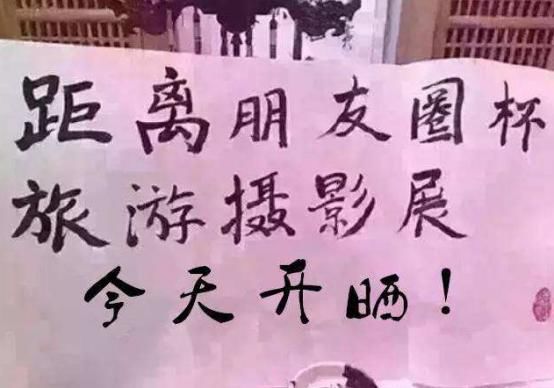 距离朋友圈杯
旅游摄影展
今天开晒！